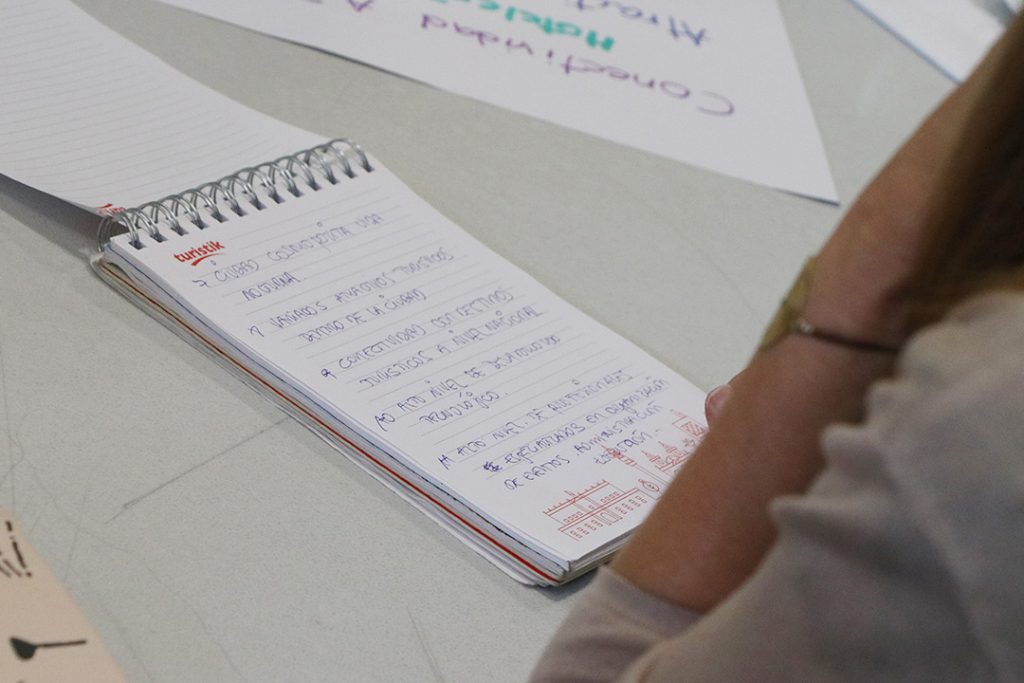 Conectividad
Hotelería
Atracti
turistik
7 CIUDAD COSMOPOLITA VIDA
NOCTURNA
VARIADOS ATRACTIVOS TURISTICOS
DENTRO DE LA CIUDAD
9 CONECTIVIDAD CON DESTINOS
TURISTICOS A NIVEL NACIONAL
10 ALTO NIVEL DE DESARROLLO
TECNOLÓGICO.
11 ALTO NIVEL DE
ESPECIALIZADOS en organización
DE EVENTOS ADMINISTRACIÓN